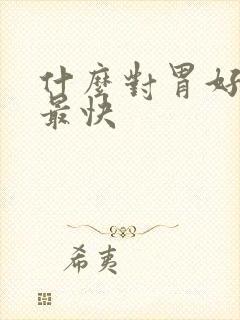 什麼對胃好
最快
希夷